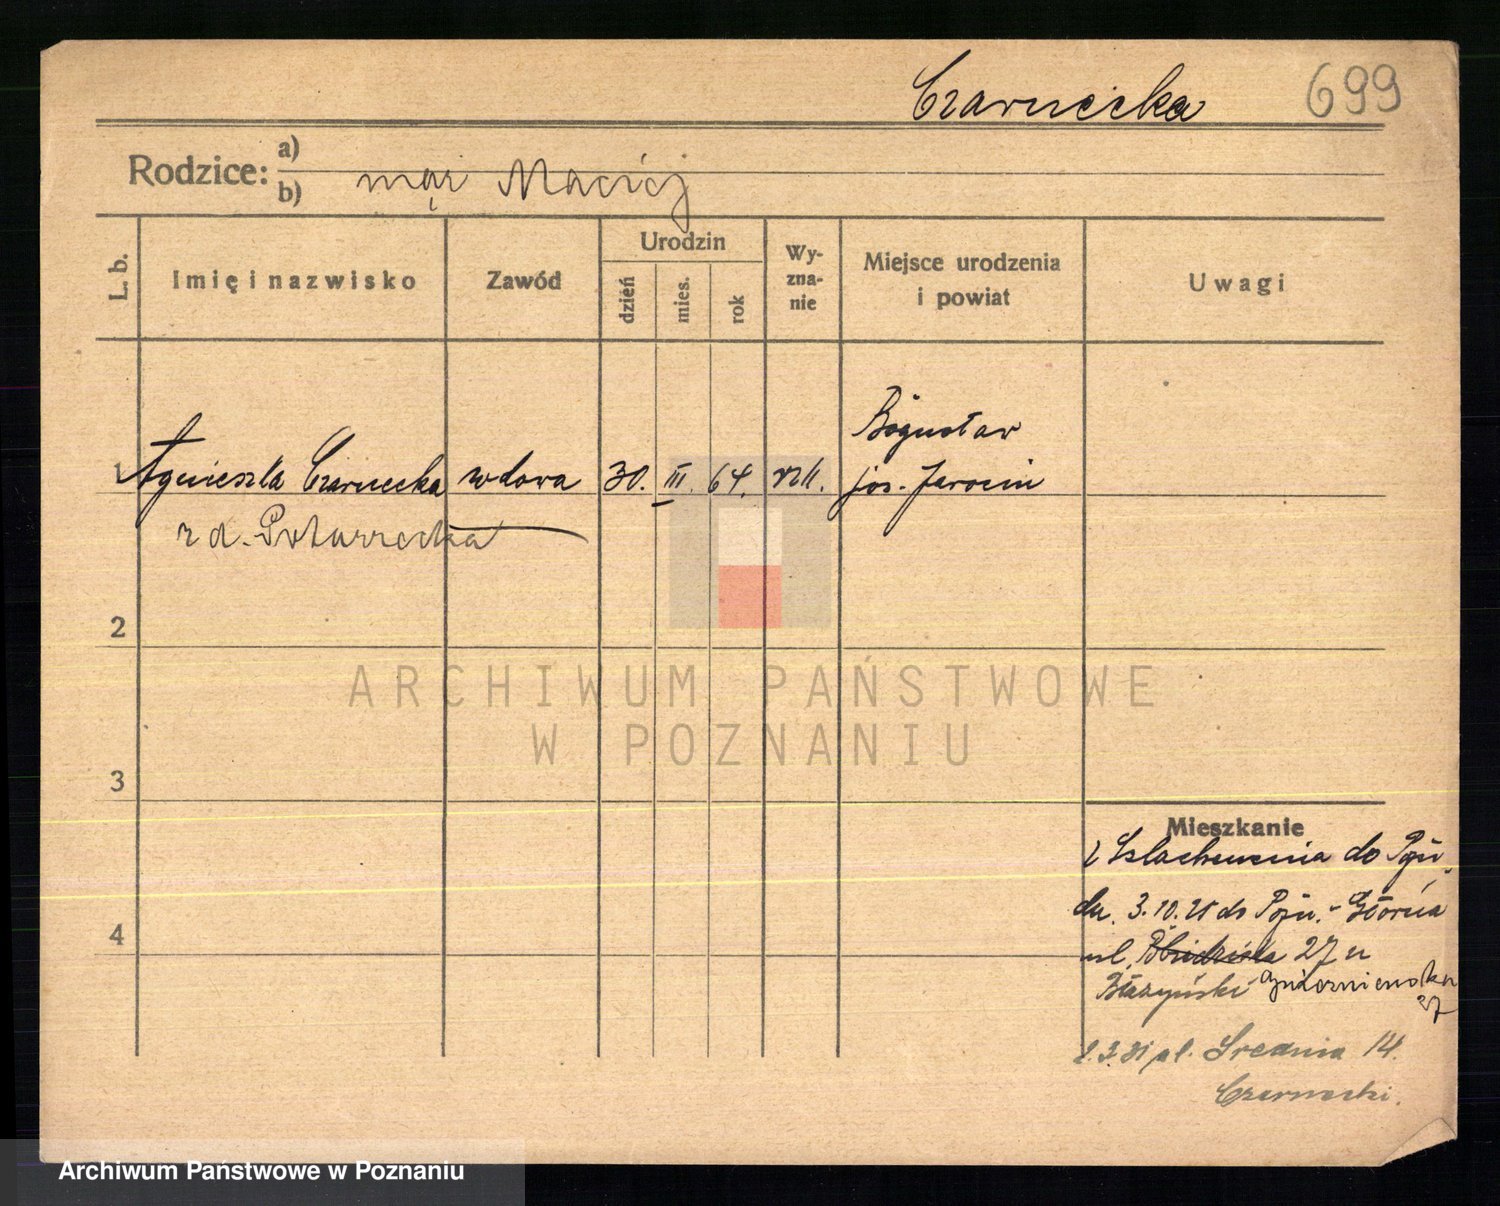 Czarnecka 699
Rodzice: a)
b) mąż Maciej
L. b. Imię i nazwisko Zawód Urodzin dzień mies. rok Wy-zna-nie Miejsce urodzenia i powiat Uwagi
Bogusław
1 Agnieszka Czarnecka wdowa 30. III. 64. rzk. pow. Jarocin
z d. Potarzecka
2
ARCHIWUM PAŃSTWOWE
W POZNANIU
3
Mieszkanie
z do Pozn.
4
dn. 3.10. do Pozn. - Główna
ul. 27 u
Błażyński Gnieźnieńska
27
2.3.31 pl. Średnia 14.
Czarnecki.
Archiwum Państwowe w Poznaniu